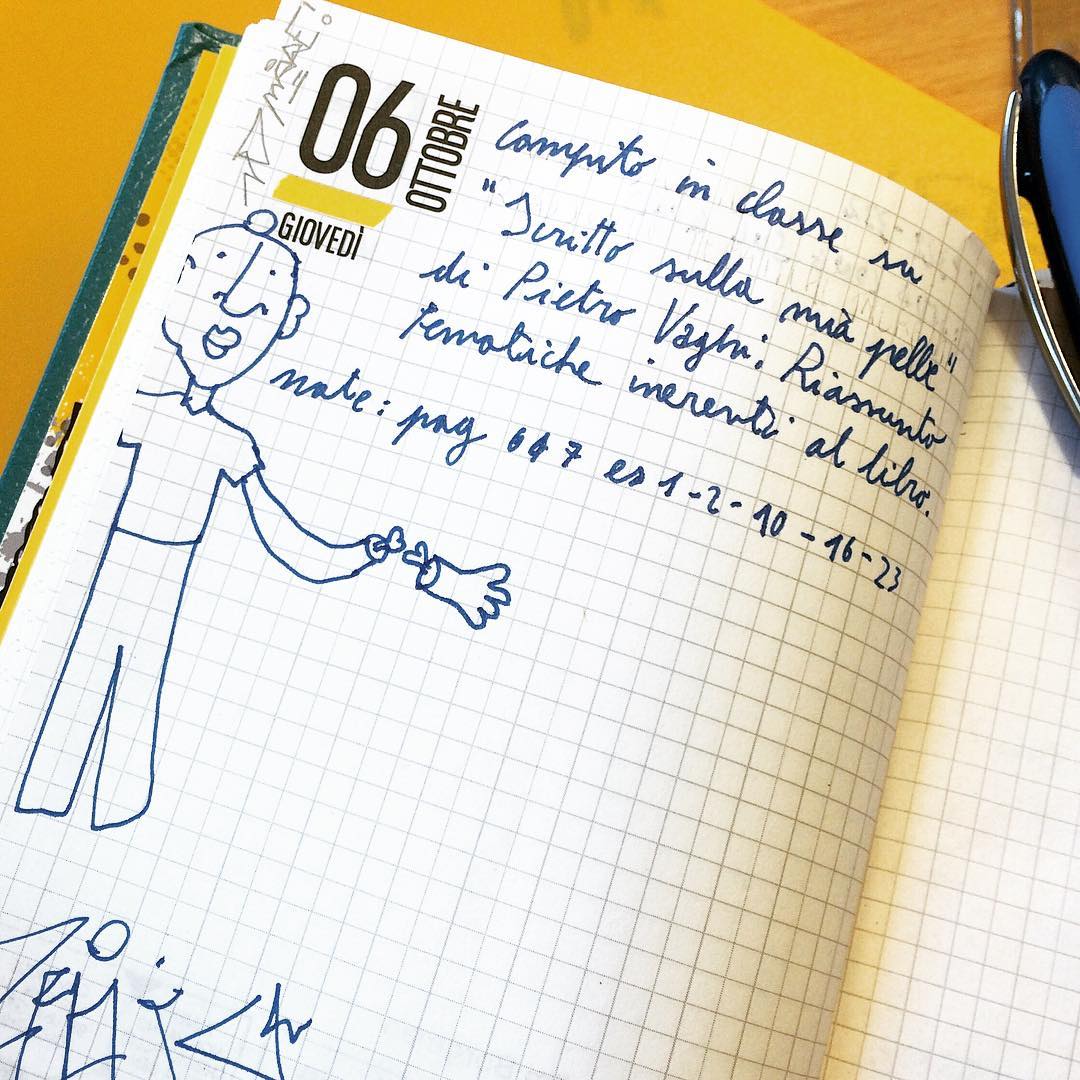 06
OTTOBRE
GIOVEDÌ
Compito in classe su
"Scritto sulla mià pelle"
di Pietro Vaghi; Riassunto
tematiche inerenti al libro.
mate: pag 647 es 1-2-10-16-23